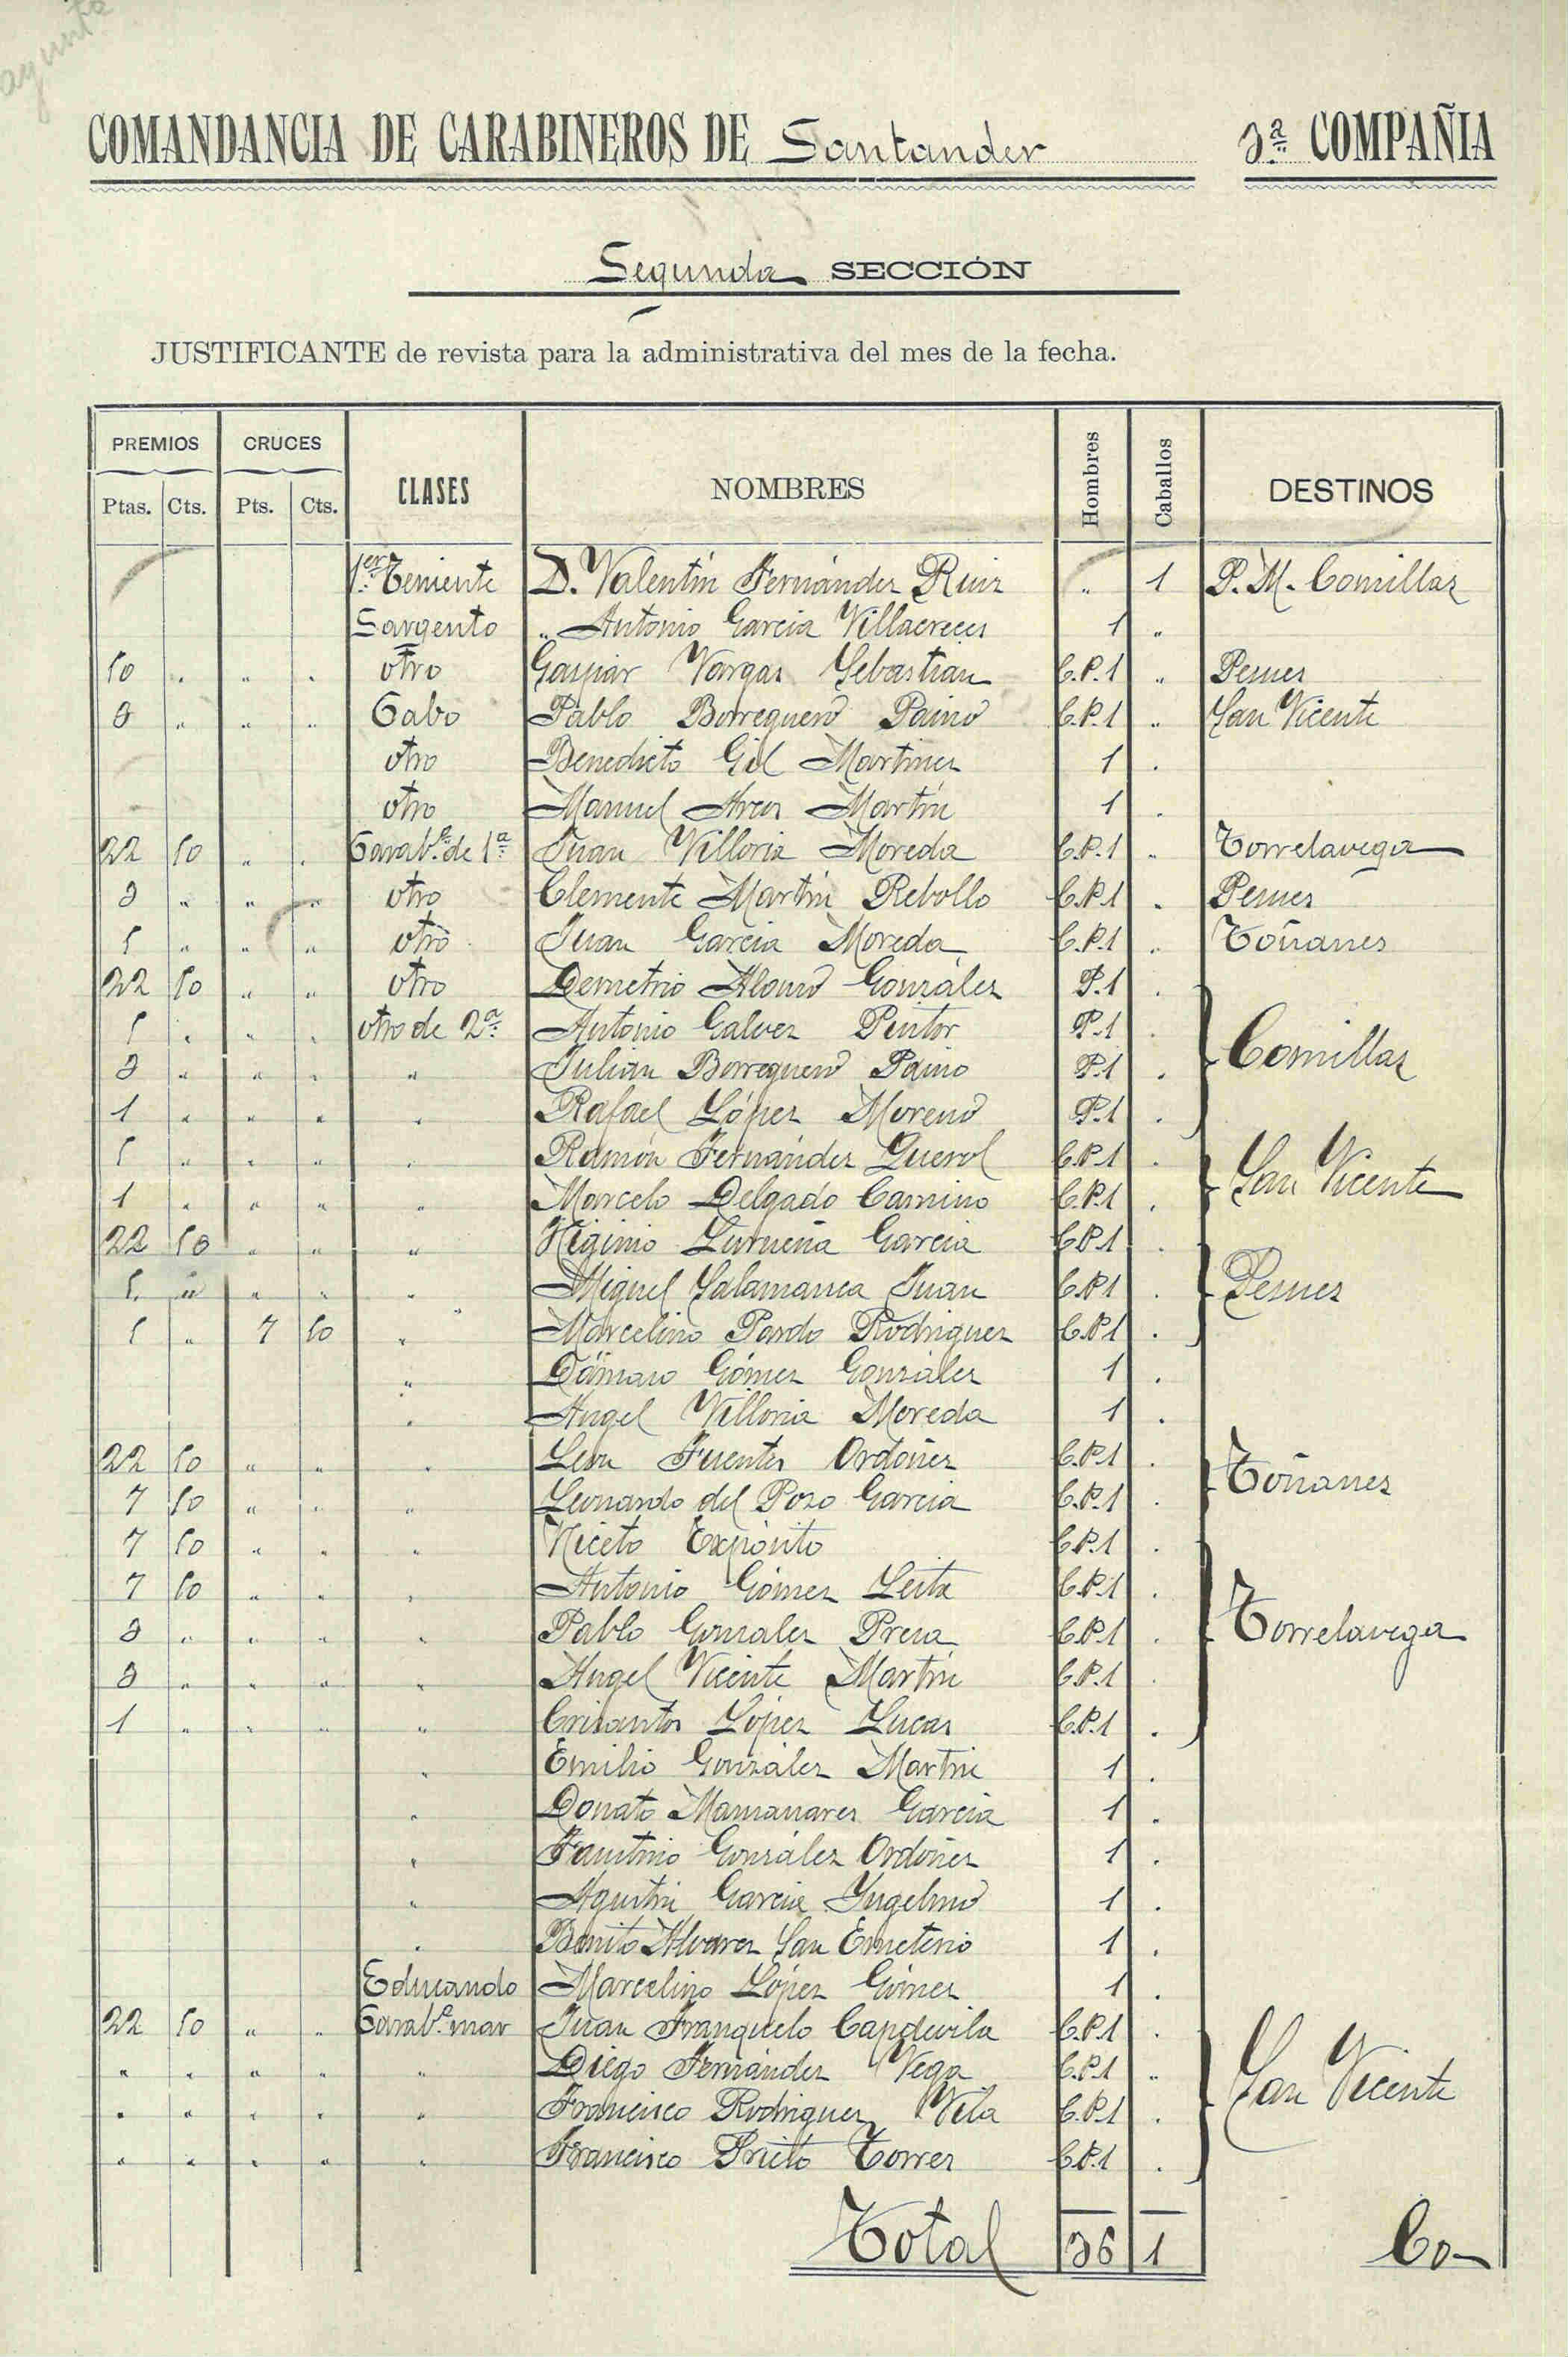 ajunta
COMANDANCIA DE CARABINEROS DE Santander 3ª COMPAÑIA
Segunda SECCIÓN
JUSTIFICANTE de revista para la administrativa del mes de la fecha.
PREMIOS CRUCES CLASES NOMBRES Hombres Caballos DESTINOS
Ptas. Cts. Pts. Cts.
1er Teniente D. Valentín Fernández Ruiz " 1 P. M. Comillas
Sargento " Antonio Garcia Villacreces 1 "
50 " " " otro Gaspar Vargas Sebastian C.P.1 " Pesues
3 " " " Cabo Pablo Borreguero Paino C.P.1 " San Vicente
otro Benedicto Gil Martinez 1 "
otro Manuel Arcos Martín 1 "
22 50 " " Carabº de 1ª Juan Villoria Moreda C.P.1 " Torrelavega
3 " " " otro Clemente Martín Rebollo C.P.1 " Pesues
5 " " " otro Juan Garcia Moreda C.P.1 " Toñanes
22 50 " " otro Demetrio Alonso González P.1 "
5 " " " otro de 2ª Antonio Galvez Pintor P.1 "
3 " " " " Julián Borreguero Paino P.1 " Comillas
1 " " " " Rafael López Moreno P.1 "
5 " " " " Ramón Fernández Querol C.P.1 "
1 " " " " Marcelo Delgado Camino C.P.1 " San Vicente
22 50 " " " Higinio Lurueña Garcia C.P.1 "
5 " " " " Miguel Salamanca Juan C.P.1 " Pesues
5 " 7 50 " Marcelino Pardo Rodriguez C.P.1 "
" Dámaso Gómez González 1 "
" Angel Villoria Moreda 1 "
22 50 " " " León Fuentes Ordoñez C.P.1 "
7 50 " " " Leonardo del Pozo Garcia C.P.1 " Toñanes
7 50 " " " Niceto Expósito C.P.1 "
7 50 " " " Antonio Gómez Leita C.P.1 "
3 " " " " Pablo Gonzalez Presa C.P.1 " Torrelavega
3 " " " " Angel Vicente Martín C.P.1 "
1 " " " " Crisantos López Lucas C.P.1 "
" Emilio González Martín 1 "
" Donato Manzanares Garcia 1 "
" Faustino González Ordoñez 1 "
" Agustín Garcia Yugelmo 1 "
" Benito Alvarez San Emeterio 1 "
Educando Marcelino López Gómez 1 "
22 50 " " Carabº mar Juan Franquelo Capdevila C.P.1 "
" " " " " Diego Fernández Vega C.P.1 "
" " " " " Francisco Rodriguez Vila C.P.1 " San Vicente
" " " " " Francisco Prieto Torres C.P.1 "
Total 36 1 Co-